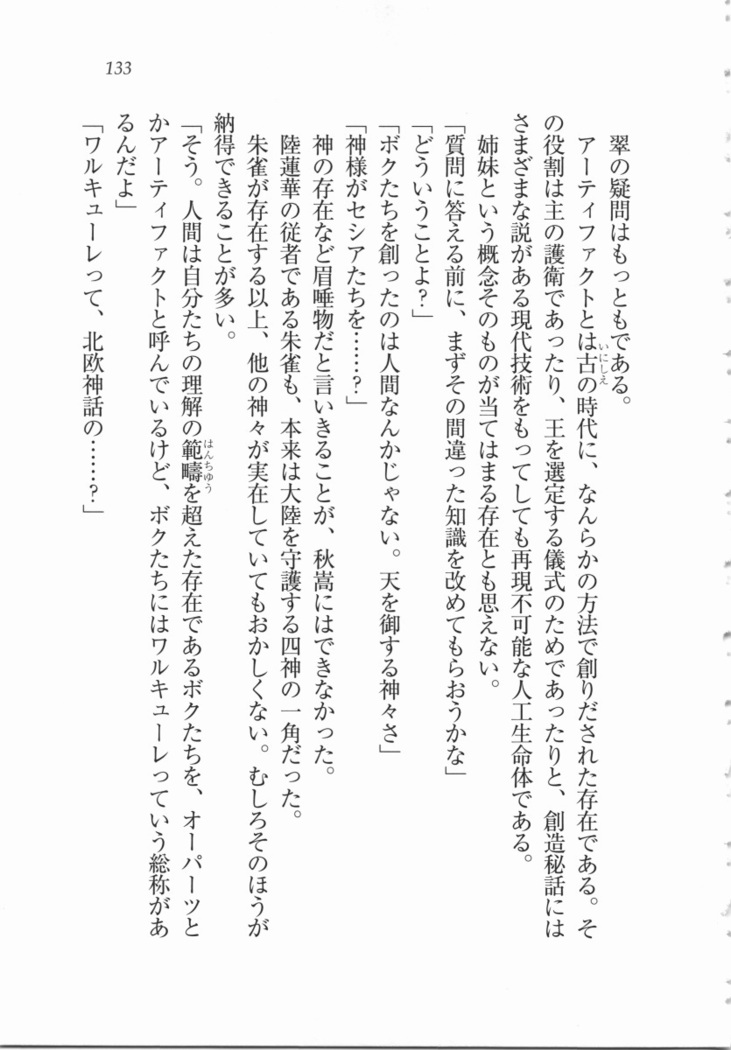 133
翠の疑問はもっともである。
アーティファクトとは古の時代に、なんらかの方法で創りだされた存在である。そ
いにしえ
の役割は主の護衛であったり、王を選定する儀式のためであったりと、創造秘話には
さまざまな説がある現代技術をもってしても再現不可能な人工生命体である。
姉妹という概念そのものが当てはまる存在とも思えない。
「質問に答える前に、まずその間違った知識を改めてもらおうかな」
「どういうことよ？」
「ボクたちを創ったのは人間なんかじゃない。天を御する神々さ」
「神様がセシアたちを……？」
神の存在など眉唾物だと言いきることが、秋嵩にはできなかった。
陸蓮華の従者である朱雀も、本来は大陸を守護する四神の一角だった。
朱雀が存在する以上、他の神々が実在していてもおかしくない。むしろそのほうが
納得できることが多い。
「そう。人間は自分たちの理解の範疇を超えた存在であるボクたちを、オーパーツと
はんちゅう
かアーティファクトと呼んでいるけど、ボクたちにはワルキューレっていう総称があ
るんだよ」
「ワルキューレって、北欧神話の……？」